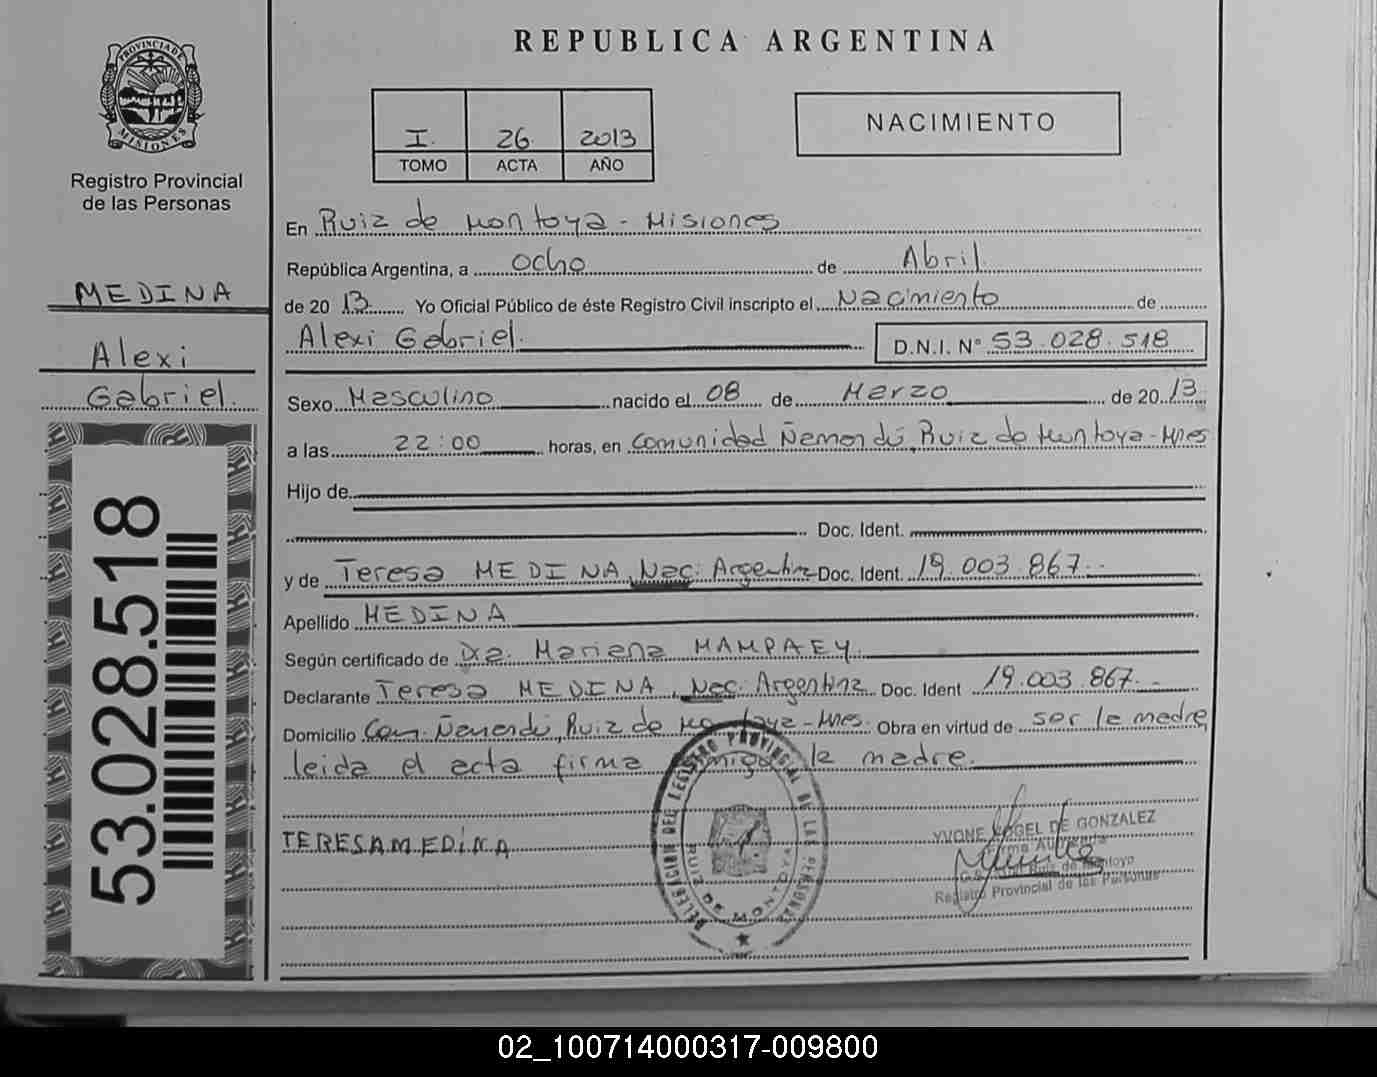 REPUBLICA ARGENTINA
PROVINCIA DE
MISIONES
Registro Provincial
de las Personas
I. 26 2013
TOMO ACTA AÑO
NACIMIENTO
MEDINA
Alexi
Gabriel.
53.028.518
En Ruiz de Montoya - Misiones
República Argentina, a ocho de Abril.
de 20 13 Yo Oficial Público de éste Registro Civil inscripto el Nacimiento de
Alexi Gabriel. D.N.I. N° 53.028.518
Sexo Masculino nacido el 08 de Marzo de 20 13
a las 22:00 horas, en Comunidad Ñamandú, Ruiz de Montoya - Mnes
Hijo de
Doc. Ident.
y de Teresa MEDINA, Nac. Argentina Doc. Ident. 19.003.867.-
Apellido MEDINA
Según certificado de Dra. Mariana MAMPAEY.
Declarante Teresa MEDINA, Nac. Argentina Doc. Ident 19.003.867.-
Domicilio Com. Ñamandú, Ruiz de Montoya - Mnes. Obra en virtud de ser la madre,
leida el acta firma conmigo la madre.
TERESA MEDINA
DELEGACION DEL REGISTRO PROVINCIAL DE LAS PERSONAS
RUIZ DE MONTOYA
YVONE VOGEL DE GONZALEZ
Ruiz de Montoya
Registro Provincial de las Personas
02_100714000317-009800